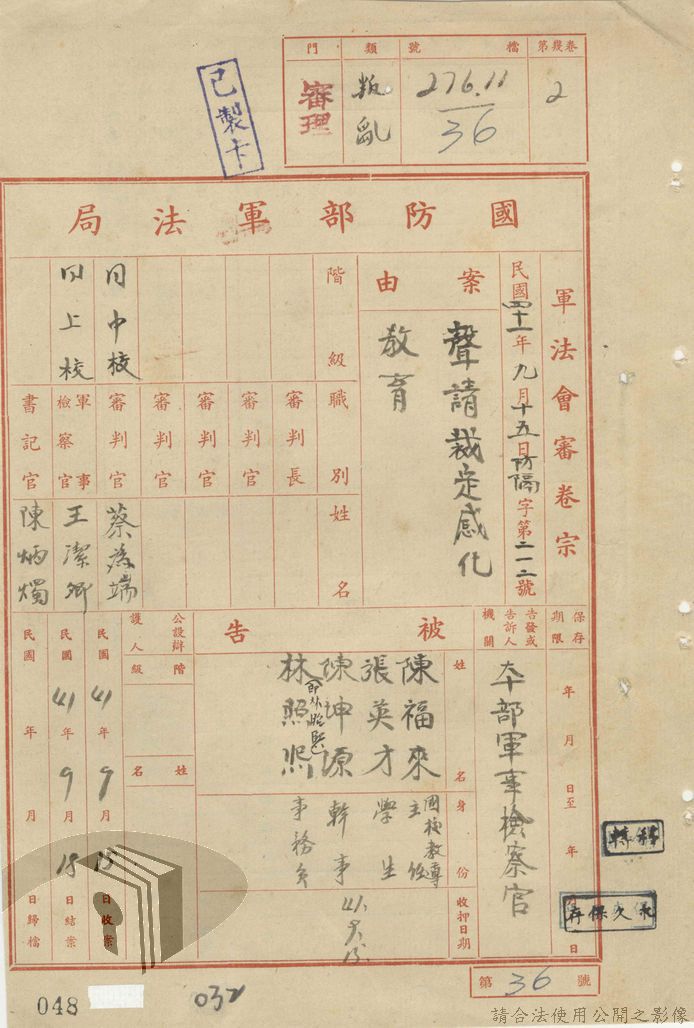 第幾卷 2
檔號 276.11/36
類 叛亂
門 審理
已製卡
國防部軍法局
軍法會審卷宗
民國四十一年九月十五日防隔字第二一二號
案由
聲請裁定感化
教育
階級
職別
姓名
審判長
審判官
審判官
審判官
同中校 審判官 蔡為端
同上校 軍事檢察官 王潔卿
書記官 陳炳燭
保存期限
年 月 日至 年 月 日
告發或告訴人機關
本部軍事檢察官
被告
姓名
身份
收押日期
陳福來 國校教導主任
張英才 學生
陳坤源 幹事
林照熙 事務員
公設辯護人
階級
姓名
民國41年9月15日收案
民國41年9月18日結案
民國 年 月 日歸檔
移轉
永久保存
第36號
048
032
請合法使用公開之影像